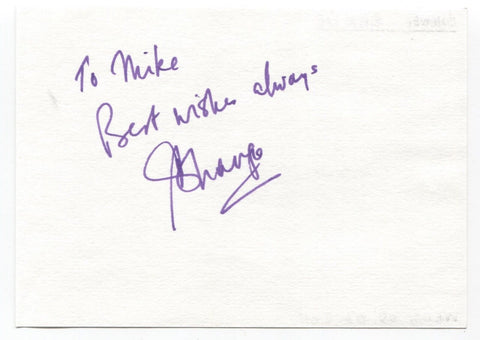 To Mike
Best wishes always